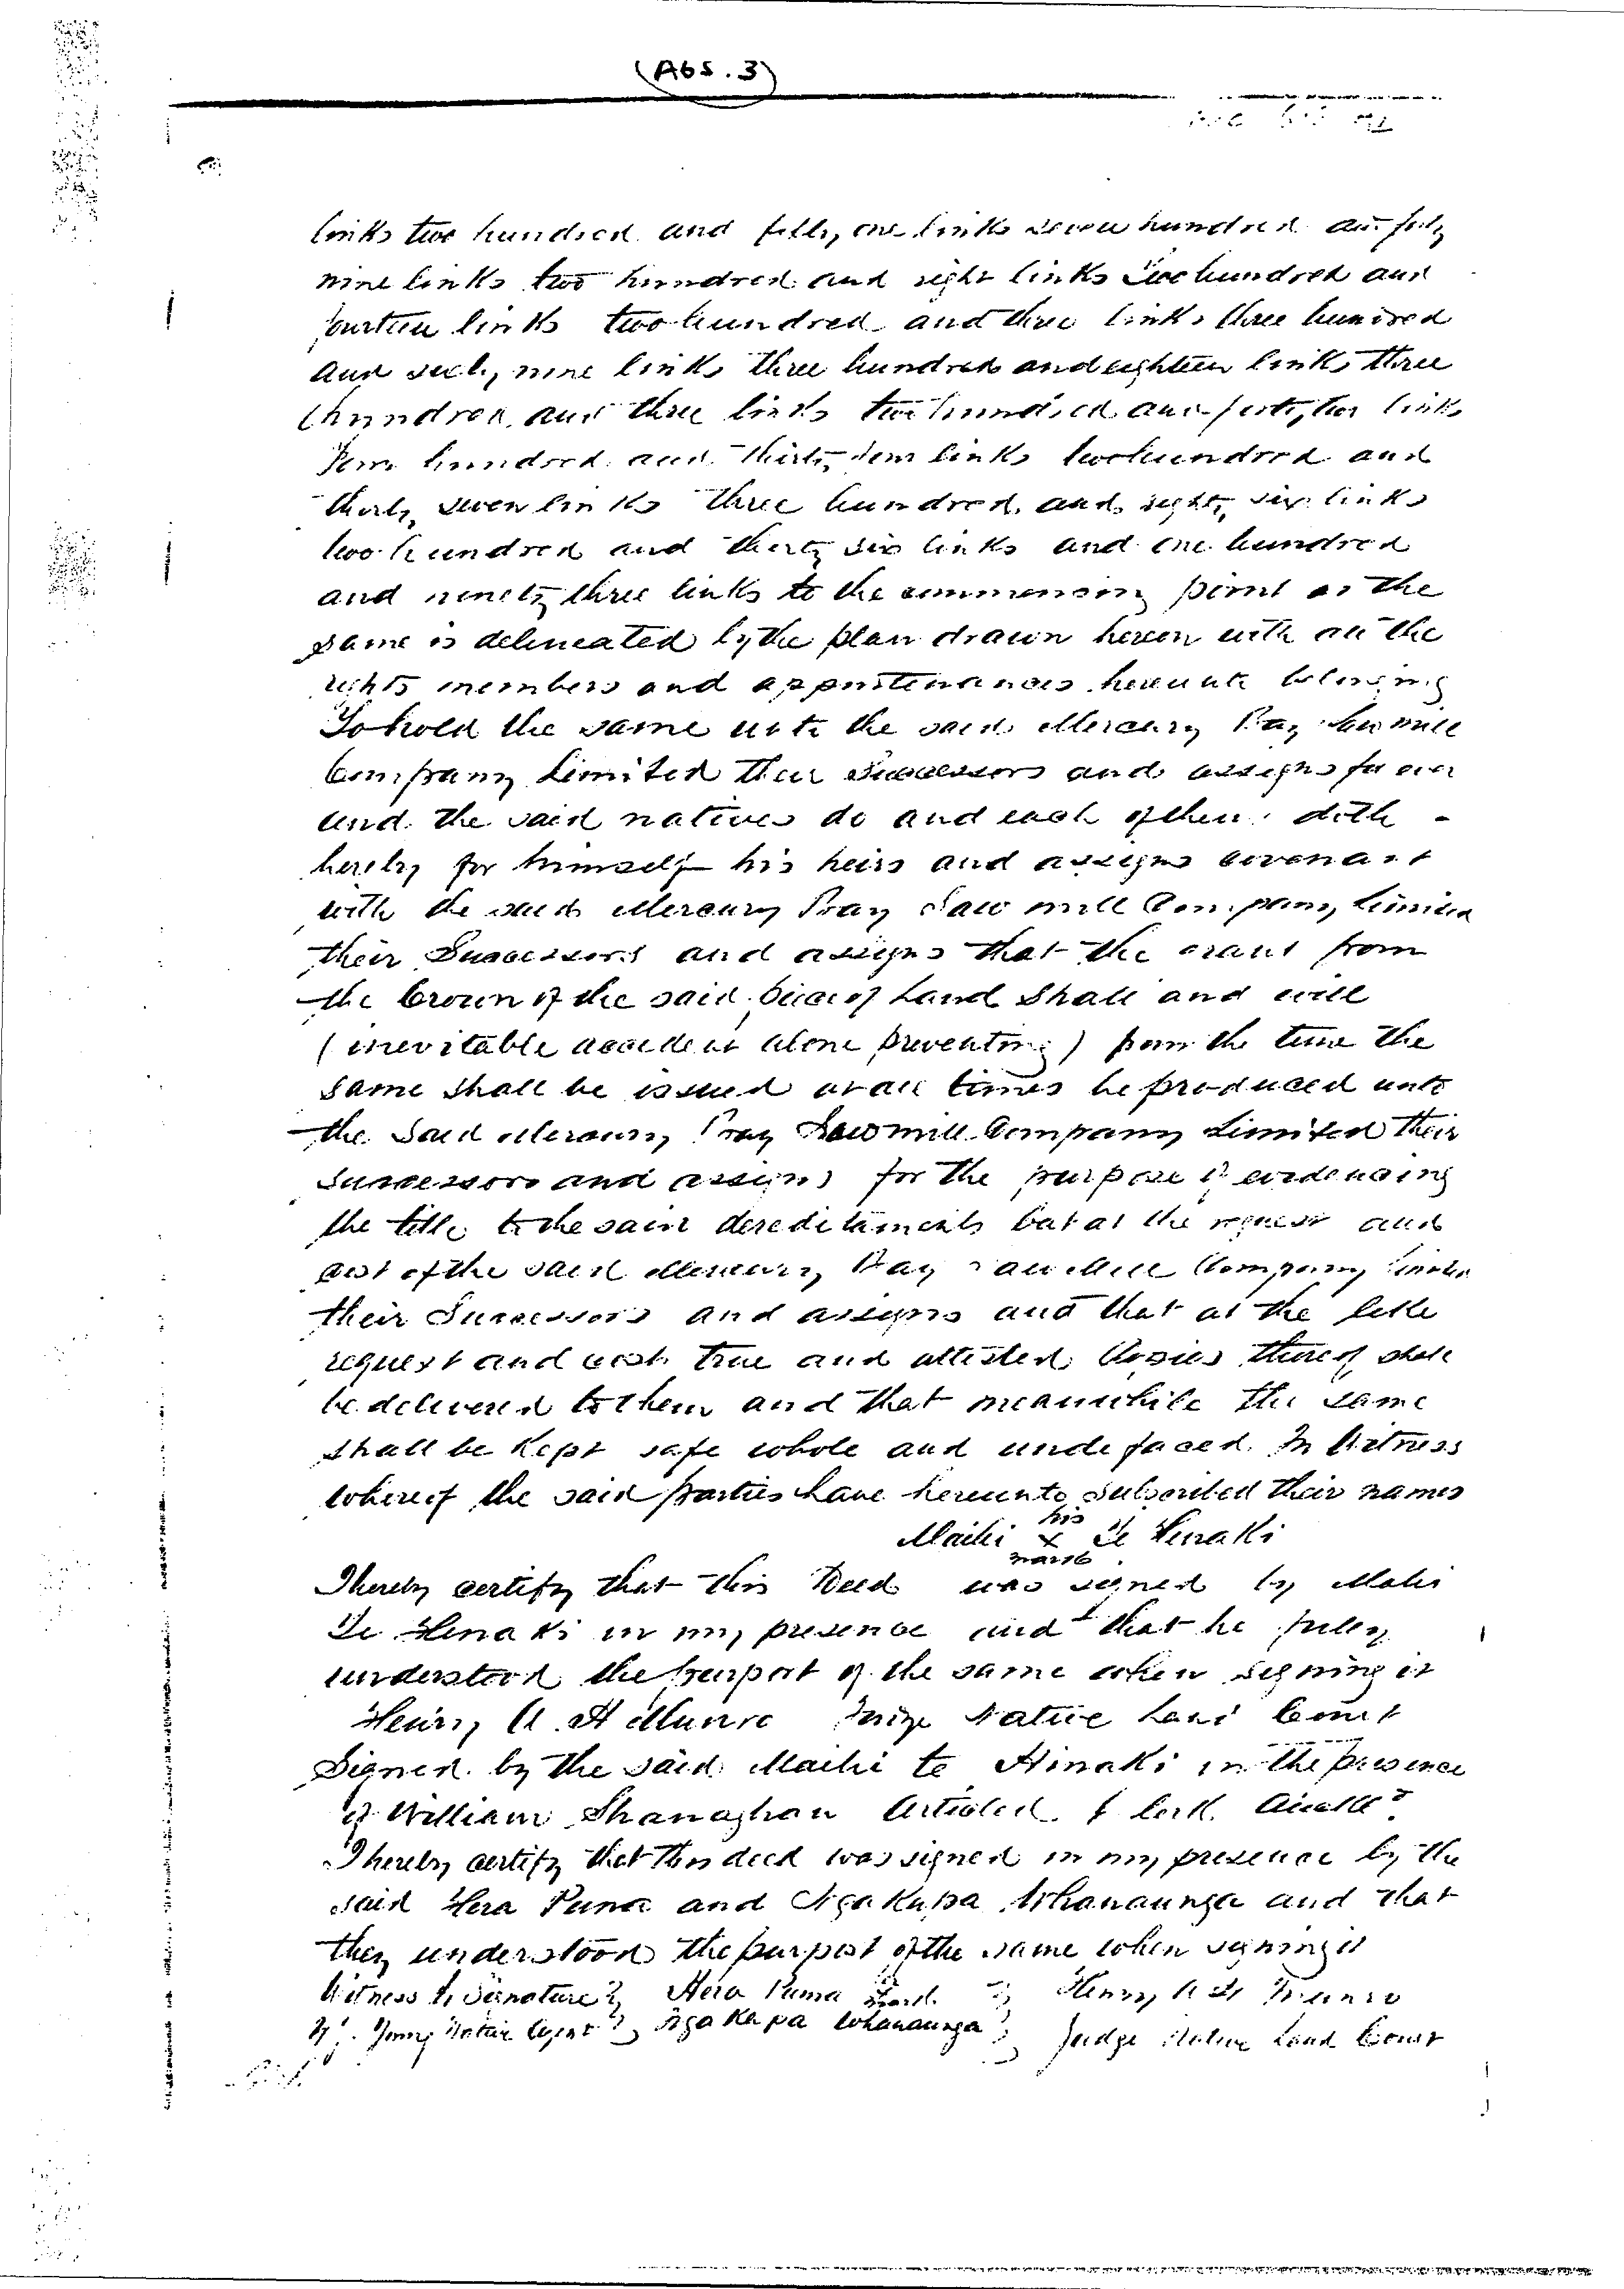 (Abs. 3)
links two hundred and fifty one links seven hundred and fifty
nine links two hundred and eight links two hundred and
fourteen links two hundred and three links three hundred
and sixty nine links three hundred and eighteen links three
hundred and three links two hundred and forty two links
hundred and thirty links two hundred and
thirty seven links three hundred and eighty six links
two hundred and thirty six links and one hundred
and ninety three links to the commencing point as the
same is delineated by the plan drawn hereon with all the
rights members and appurtenances hereunto belonging
To hold the same unto the said Mercury Bay Saw mill
Company Limited their Successors and assigns for ever
and the said natives do and each of them doth
hereby for himself his heirs and assigns covenant
with the said Mercury Bay Saw mill Company Limited
their Successors and assigns that the grant from
the Crown of the said piece of Land Shall and will
(inevitable accident alone preventing) from the time the
same shall be issued at all times be produced unto
the Said Mercury Bay Sawmill Company Limited their
Successors and assigns for the purpose of evidencing
the title to the said dereditaments but at the request and
cost of the said Mercury Bay Saw Mill Company Limited
their Successors and assigns and that at the like
request and cost true and attested Copies thereof shall
be delivered to them and that meanwhile the same
shall be Kept safe whole and undefaced. In Witness
whereof the said parties have hereunto subscribed their names
his
Maihi x Te Hinaki
mark
I hereby certify that this Deed was signed by Maihi
Te Hinaki in my presence and that he fully
understood the purport of the same when signing it
Henry A. H Munro Judge Native Land Court
Signed by the said Maihi te Hinaki in the presence
of William Shanaghan Articled Clerk Auckld
I hereby certify that this deed was signed in my presence by the
said Hera Puna and Ngakapa Whanaunga and that
they understood the purport of the same when signing it
Witness to Signature } Hera Puna } Henry A H Munro
Young Native Agent } Ngakapa Whanaunga } Judge Native Land Court